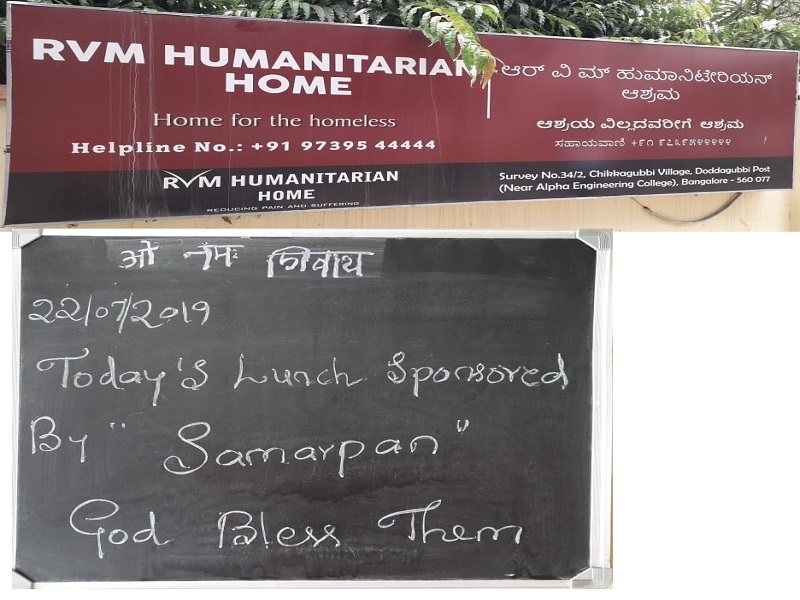 RVM HUMANITARIAN
HOME
Home for the homeless
Helpline No.: +91 97395 44444
RVM HUMANITARIAN
HOME
REDUCING PAIN AND SUFFERING
ಆರ್ ವಿ ಮ್ ಹುಮಾನಿಟೇರಿಯನ್
ಆಶ್ರಮ
ಆಶ್ರಯ ವಿಲ್ಲದವರೀಗೆ ಆಶ್ರಮ
ಸಹಾಯವಾಣಿ +೯೧ ೯೭೩೯೫೪೪೪೪೪
Survey No.34/2, Chikkagubbi Village, Doddagubbi Post
(Near Alpha Engineering College), Bangalore - 560 077
ओं नमः शिवाय
22/07/2019
Today's Lunch Sponsored
By " Samarpan"
God Bless Them